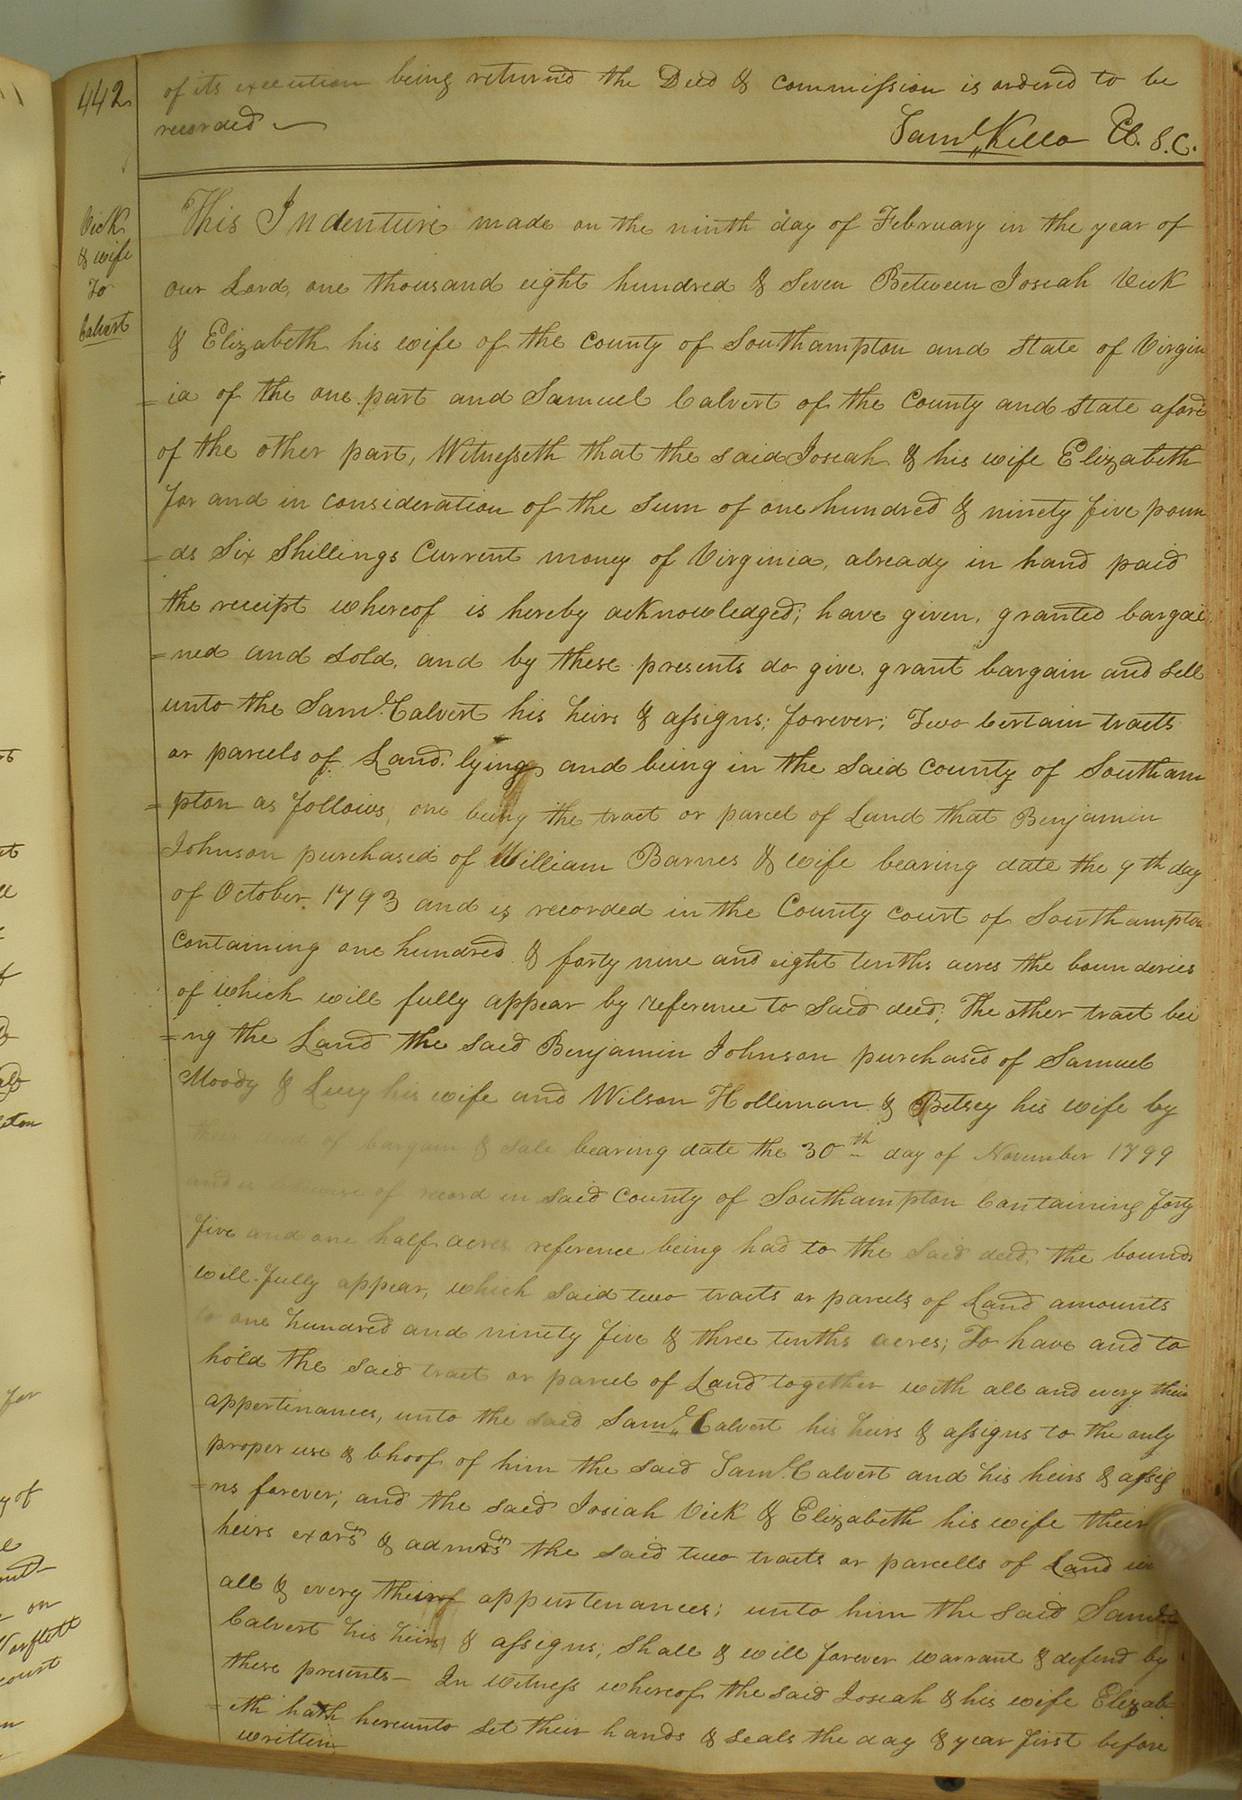 442
of its execution being return'd the Deed & commission is ordered to be
recorded
Saml. Kello Cl. S. C.
Vick
& wife
To
Calvert
This Indenture made on the ninth day of February in the year of
our Lord, one thousand eight hundred & Seven Between Josiah Vick
& Elizabeth his wife of the county of Southampton and State of Virgin
=ia of the one part and Samuel Calvert of the County and State afore
of the other part, Witnesseth that the said Josiah & his wife Elizabeth
for and in consideration of the Sum of one hundred & ninety five poun
=ds Six Shillings Current money of Virginia, already in hand paid
the receipt whereof is hereby acknowledged; have given, granted bargai
=ned and sold, and by these presents do give, grant bargain and sell
unto the Saml. Calvert his heirs & assigns; forever; Two Certain tracts
or parcels of Land, lying and being in the said county of Southam
=pton as follows, one being the tract or parcel of Land that Benjamin
Johnson purchased of William Barnes & wife bearing date the 9th day
of October 1793 and is recorded in the County court of Southampton
Containing one hundred & forty nine and eight tenths acres the bounderies
of which will fully appear by reference to said deed; The other tract bei
=ng the Land the said Benjamin Johnson purchased of Samuel
Moody & Lucy his wife and Wilson Holliman & Betsey his wife by
deed of bargain & sale bearing date the 30th day of November 1799
and is likewise of record in said county of Southampton Containing forty
five and one half acres reference being had to the said deed, the bounds
will fully appear, which said two tracts or parcels of Land amounts
to one hundred and ninety five & three tenths acres; To have and to
hold the said tract or parcel of Land together with all and every their
appertinances, unto the said Saml. Calvert his heirs & assigns to the only
proper use & bhoof of him the said Saml. Calvert and his heirs & assig
=ns forever; and the said Josiah Vick & Elizabeth his wife their
heirs exors & admrs the said two tracts or parcells of Land
all & every their appurtenances; unto him the said Saml.
Calvert his heirs & assigns, Shall & will forever warrant & defend by
these presents - In witness whereof the said Josiah & his wife Elizab
=eth hath hereunto set their hands & seals the day & year first before
written